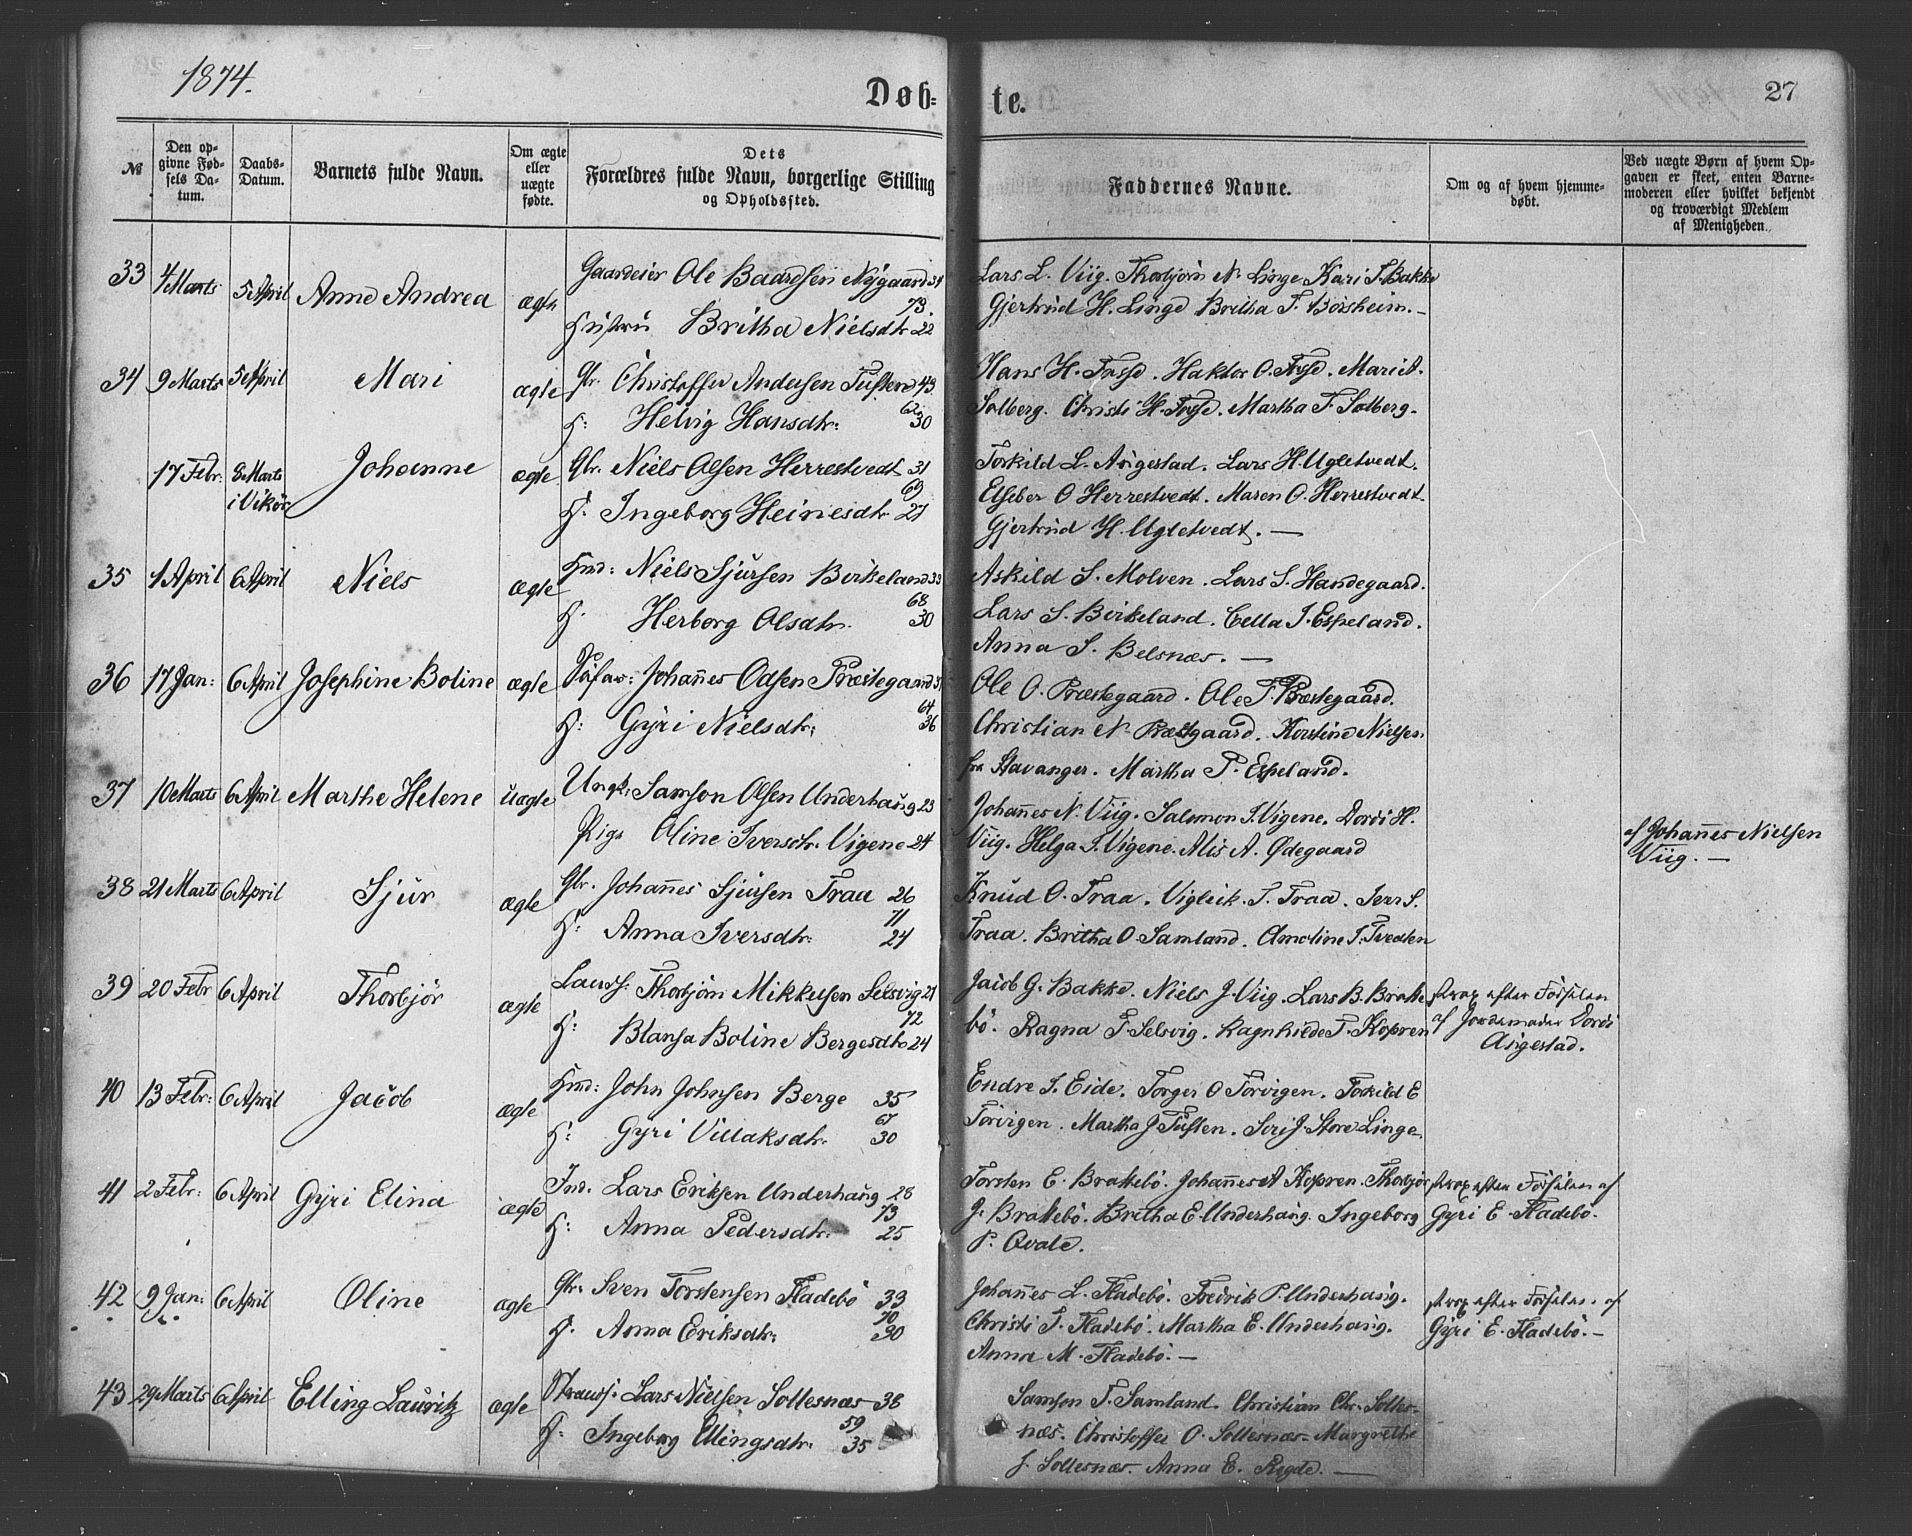 1874.
Døb-
te.
27
№
Den op-
givne Fød-
sels Da-
tum.
Daabs-
Datum.
Barnets fulde Navn.
Om ægte
eller
uægte
fødte.
Dets
Forældres fulde Navn, borgerlige Stilling
og Opholdssted.
Faddernes Navne.
Om og af hvem hjemme-
døbt.
Ved uægte Børn af hvem Op-
gaven er skeet, enten Barne-
moderen eller hvilket bekjendt
og troværdigt Medlem
af Menigheden.
33 4 Marts 5 April Anne Andrea ægte
Gaardeier Ole Baardsen Nygaard 34
73.
Hustru Britha Nielsdtr 22
Lars L. Viig. Thorbjörn N. Linge Kari T. Bakke
Gjertrud H. Linge Britha T. Börsheim. -
34 9 Marts 5 April Mari ægte
Gbr. Christoffer Andersen Tuften 43
62
H: Helvig Hansdtr: 30
Hans H. Fosse. Haktor O. Fosse. Mari A.
Solberg. Christi H. Fosse. Martha T. Solberg.
17 Febr: 8 Marts
i Vikör Johanne ægte
Gbr. Niels Olsen Herrestvedt 31
69
H: Ingeborg Heinesdtr 27
Torkild L. Aksgestad. Lars H. Ugletvedt.
Elseber O Herrestvedt. Maren O. Herrestvedt.
Gjertrud H. Ugletvedt. -
35 1 April 6 April Niels ægte
Hmd: Niels Sjursen Birkeland 33
68
H. Herborg Olsdtr. 30
Askild S. Molven. Lars S. Handegaard.
Lars S. Birkeland. Cella J. Espeland.
Anna S. Belsnæs. -
36 17 Jan: 6 April Josephine Boline ægte
Söfar: Johannes Odsen Præstegaard
64
H: Gyri Nielsdtr: 36
Ole O. Præstegaard. Ole T. Præstegaard.
Christian N. Præstgaard. Korstine Nielsen
fra Stavanger. Martha P. Espeland.
37 10 Marts 6 April Marthe Helene uægte
Ungk: Samson Olsen Underhaug 23
Pige Oline Iversdtr. Vigene 24
Johannes N. Viig. Salomon I. Vigene. Dordi H.
Viig. Helga I. Vigene. Alis A. Ødegaard
af Johannes Nielsen
Viig. -
38 21 Marts 6 April Sjur ægte
Gbr. Johannes Sjursen Traa 26
71
H: Anna Iversdtr: 24
Knud O. Traa. Vigleik. S. Traa. Iver S.
Traa. Britha O. Samland. Amoline I. Tveden
39 20 Febr 6 April Thorbjör ægte
Thorbjörn Mikkelsen Selsvig 27
72
H: Blansa Boline Bergesdtr 24
Jacob G. Bakke. Niels J. Viig. Lars B. Brakke
bö. Ragna T. Selsvig. Ragnhilde T. Kopren
strax efter Födselen
af Jordemoder Dordi
Aksgestad.
40 13 Febr: 6 April Jacob ægte
Hmd: John Johnsen Berge 35
67
H: Gyri Villaksdtr. 30
Endre I. Eide. Torger O Torvigen. Torkild E
Torvigen. Martha J Tuften. Siri J. Store Linge.
41 2 Febr: 6 April Gyri Elina ægte
Ind. Lars Eriksen Underhaug 28
73
H: Anna Pedersdtr. 25
Torsten E. Brakkebö. Johannes A Kopren. Thorbjör
J. Brakkebö. Britha E. Underhaug. Ingeborg
P. Qvale.
strax efter Födselen af
Gyri E. Fladebö.
42 9 Jan: 6 April Oline ægte
Gbr. Sven Torstensen Fladebö 33
70
H. Anna Eriksdtr: 30
Johannes L. Fladebö. Fredrik P. Underhaug.
Christi T. Fladebö. Martha E. Underhaug.
Anna M. Fladebö. -
strax efter Födselen af
Gyri E. Fladebö. -
43 29 Marts 6 April Elling Lauritz ægte
Strands: Lars Nielsen Sollesnæs 38
59
H: Ingeborg Ellingsdtr: 35
Samson T. Samland. Christian Chr. Solles-
næs. Christoffer O. Sollesnæs. Margrethe
J. Sollesnæs. Anna E. Rygde. -